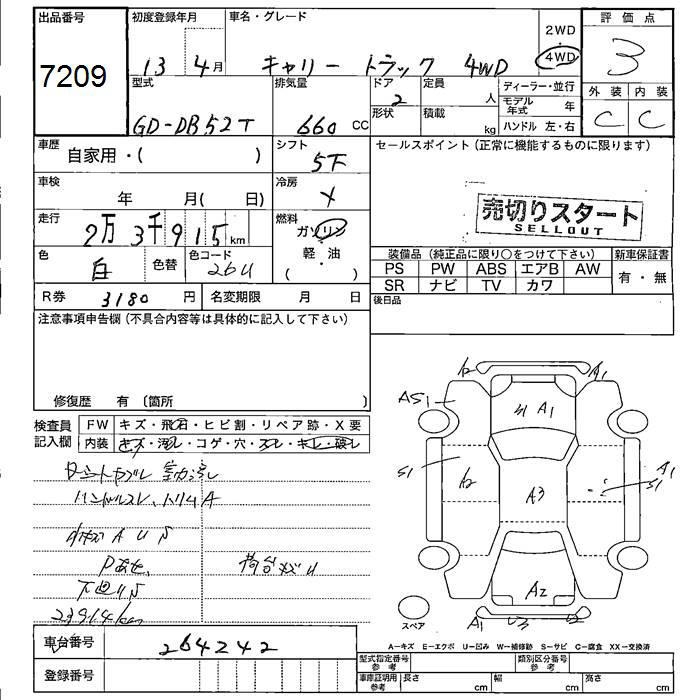 出品番号
7209
初度登録年月
13 4月
車名・グレード
キャリー トラック 4WD
2WD
4WD
評価点
3
外装 内装
C C
型式
GD-DB52T
排気量
660 CC
ドア
2
形状
定員
人
積載
kg
ディーラー・並行
モデル年式 年
ハンドル 左・右
車歴
自家用・( )
シフト
5下
セールスポイント (正常に機能するものに限ります)
売切りスタート
SELLOUT
車検
年 月( 日)
冷房
走行
2万3千915km
燃料
ガソリン
軽・油
( )
色
白
色替
色コード
26U
装備品 (純正品に限り○をつけて下さい)
新車保証書
PS PW ABS エアB AW
SR ナビ TV カワ
有・無
R券 3180 円
名変期限 月 日
後日品
注意事項申告欄(不具合内容等は具体的に記入して下さい)
修復歴 有 〔箇所 〕
検査員記入欄
FW キズ・飛石・ヒビ割・リペア跡・X要
内装 キズ・汚レ・コゲ・穴・スレ・キレ・破レ
ハンドルスレ、トリムA
下回りS
23914km
車台番号
264242
登録番号
A1
AS1
A1
S1
A2
A3
S1
A1
A2
A1
スペア
A−キズ E−エクボ U−凹み W−補修跡 S−サビ C−腐食 XX−交換済
型式指定番号
参考
類別区分番号
参考
車庫証明用
参考
長さ cm
幅 cm
高さ cm